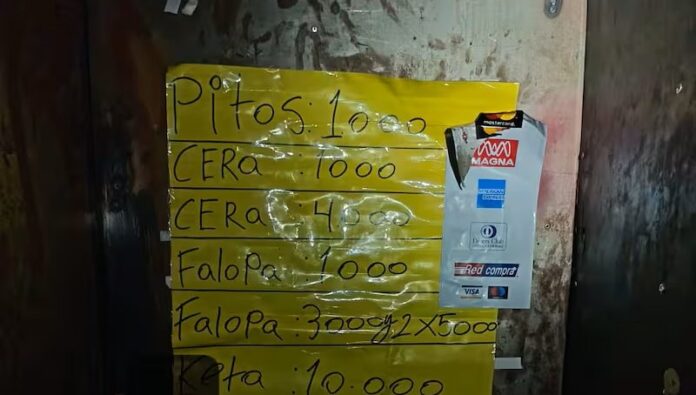 Pitos: 1000
CERa: 1000
CERa: 4000
Falopa: 1000
Falopa: 3000y2x5000
Keta: 10.000
mastercard
MAGNA
AMERICAN EXPRESS
Diners Club
INTERNATIONAL
Red compra
VISA